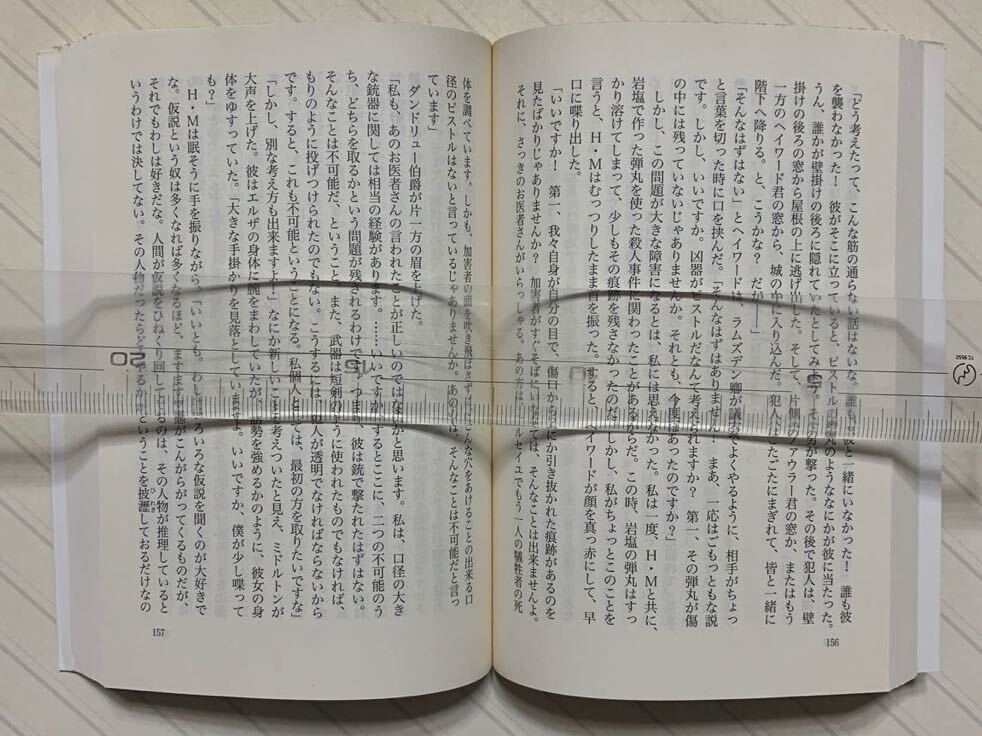 「どう考えたって、こんな筋の通らない話はないな。誰も彼と一緒にいなかった！　誰も彼
を襲わなかった！　彼がそこに立っていると、ピストルの弾丸のようななにかが彼に当たった。
うん、誰かが壁掛けの後ろに隠れていたとしてみよう。その男が撃った。その後で犯人は、壁
掛けの後ろの窓から屋根の上に逃げ出した。そして、片側のファウラー君の窓か、またはもう
一方のヘイワード君の窓から、城の中に入り込んだ。犯人はごたごたにまぎれて、皆と一緒に
階下へ降りる。と、こうかな？　だが――」
「そんなはずはない」とヘイワードは、ラムズデン卿が議会でよくやるように、相手がちょっ
と言葉を切った時に口を挟んだ。「そんなはずはありません！　まあ、一応はごもっともな説
です。しかし、いいですか。凶器がピストルだなんて考えられますか？　第一、その弾丸が傷
の中には残っていないじゃありませんか。それとも、今度はあったのですか？」
しかし、この問題が大きな障害になるとは、私には思えなかった。私は一度、Ｈ・Ｍと共に、
岩塩で作った弾丸を使った殺人事件に関わったことがあるからだ。この時、岩塩の弾丸はすっ
かり溶けてしまって、少しもその痕跡を残さなかったのだ。しかし、私がちょっとこのことを
言うと、Ｈ・Ｍはむっつりしたまま首を振った。すると、ヘイワードが顔を真っ赤にして、早
口に喋り出した。
「いいですか！　第一、我々自身が自分の目で、傷口からなにか引き抜かれた痕跡があるのを
見たばかりじゃありませんか？　加害者がすぐそばにいなくては、そんなことは出来ませんよ。
それに、さっきのお医者さんがいらっしゃる。あの方はマルセイユでもう一人の犠牲者の死
156
体を調べています。しかも、加害者の頭を吹き飛ばさずにこんな穴をあけることの出来る口
径のピストルはないと言っているじゃありませんか。あの方は、そんなことは不可能だと言っ
ています」
ダンドリュー伯爵が片一方の眉を上げた。
「私も、あのお医者さんの言われたことが正しいのではないかと思います。私は、口径の大き
な銃器に関しては相当の経験があります。……いいですか、するとここに、二つの不可能のう
ち、どちらを取るかという問題が残されるわけです。つまり、彼は銃で撃たれたはずはない。
そんなことは不可能だ、ということと、また、武器は短剣のように使われたものでもなければ、
もりのように投げつけられたのでもない。こうするには、犯人が透明でなければならないから
です。すると、これも不可能ということになる。私個人としては、最初の方を取りたいですな」
「しかし、別な考え方も出来ますよ！」なにか新しいことを考えついたと見え、ミドルトンが
大声を上げた。彼はエルザの身体に腕をまわしていたが、語勢を強めるかのように、彼女の身
体をゆすっていた。「大きな手掛かりを見落としていますよ。いいですか、僕が少し喋って
も？」
Ｈ・Ｍは眠そうに手を振りながら、「いいとも。わしはいろいろな仮説を聞くのが大好きで
な。仮説という奴は多くなれば多くなるほど、ますます事態がこんがらがってくるものだが、
それでもわしは好きだな。人間が仮説をひねくり回しているのは、その人物が推理していると
いうわけでは決してない。その人物だったらどうやるかっていうことを披瀝しておるだけなの
157